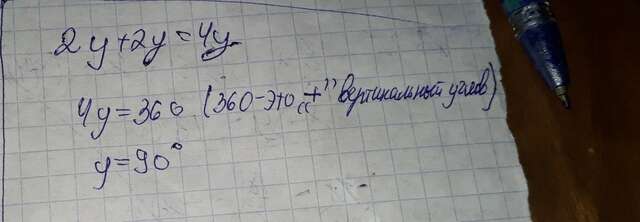 2y+2y=4y
4y=360 (360-это "+" вертикальный углов)
y=90°